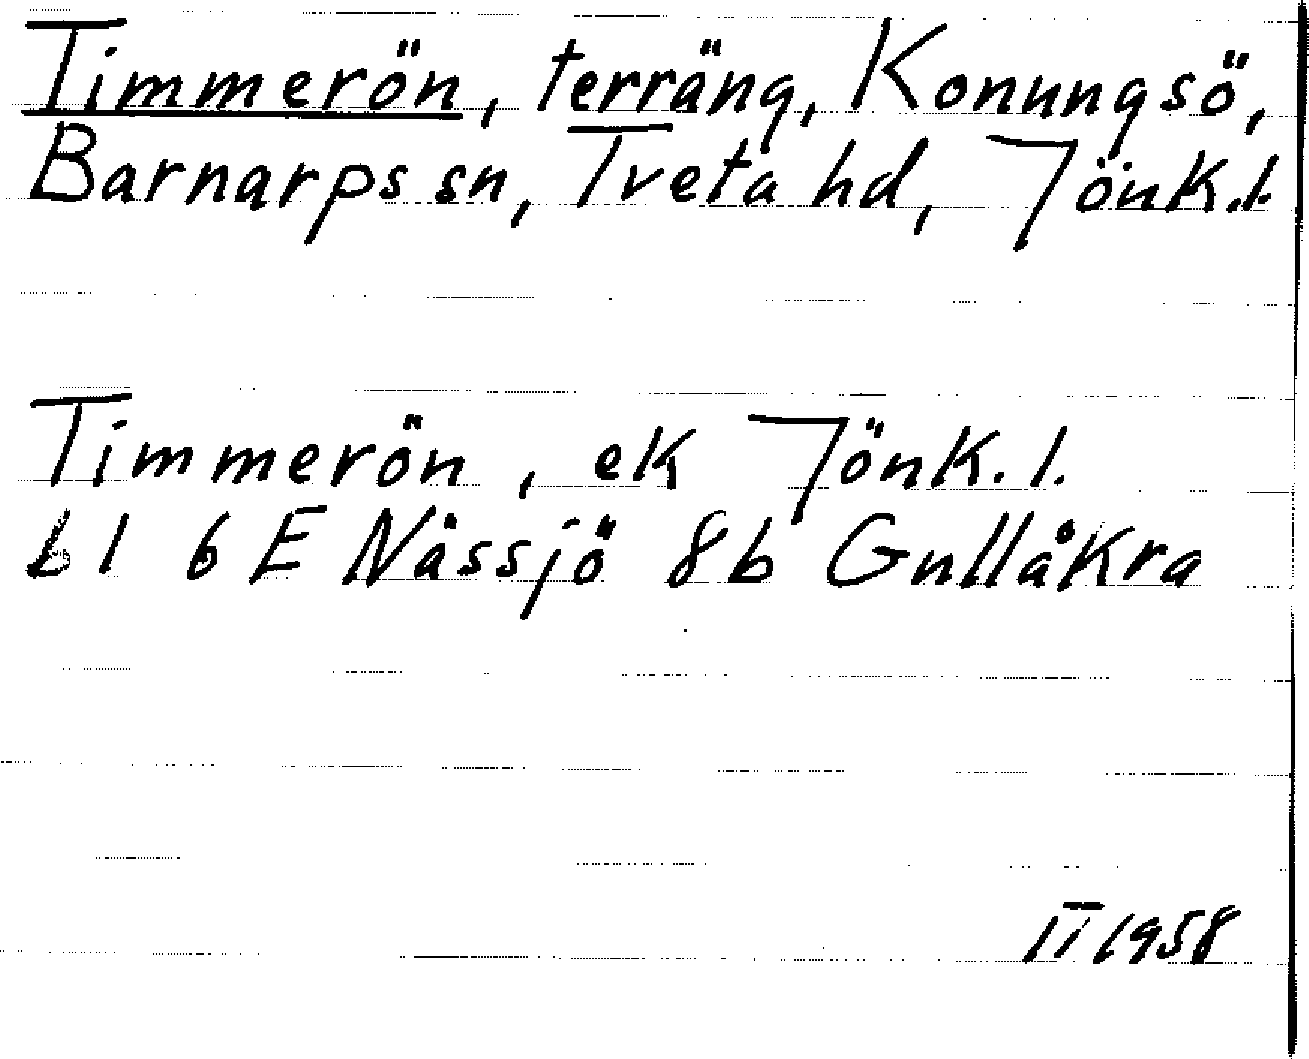 Timmerön, terräng, Konungsö,
Barnarps sn, Tveta hd, Jönk.l.
Timmerön, ek Jönk.l.
bl 6E Nässjö 8b Gullåkra
IT 1958